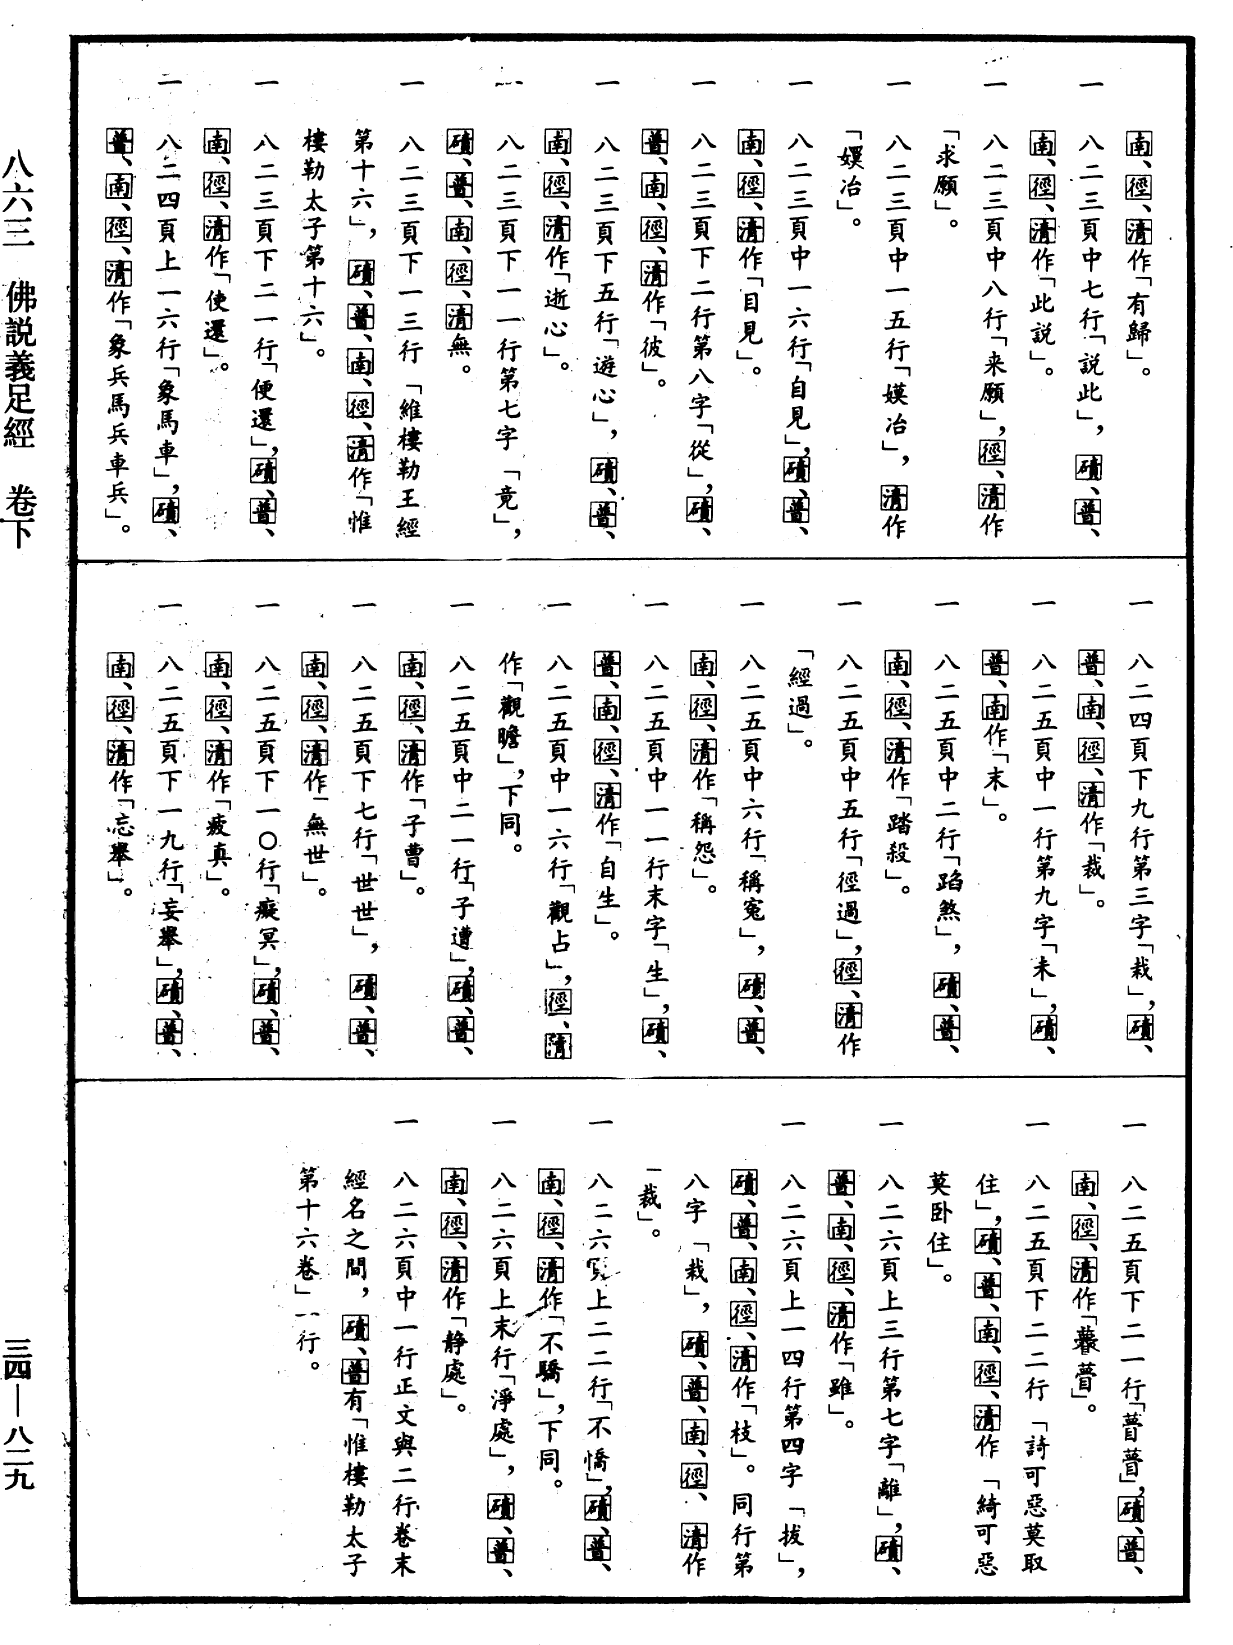 南、徑、清作「有歸」。
一　八二三頁中七行「説此」，磧、普、
南、徑、清作「此説」。
一　八二三頁中八行「来願」，徑、清作
「求願」。
一　八二三頁中一五行「媖冶」，清作
「娱冶」。
一　八二三頁中一六行「自見」，磧、普、
南、徑、清作「目見」。
一　八二三頁下二行第八字「從」，磧、
普、南、徑、清作「彼」。
一　八二三頁下五行「遊心」，磧、普、
南、徑、清作「逝心」。
一　八二三頁下一一行第七字「竟」，
磧、普、南、徑、清無。
一　八二三頁下一三行「維樓勒王經
第十六」，磧、普、南、徑、清作「惟
樓勒太子第十六」。
一　八二三頁下二一行「便還」，磧、普、
南、徑、清作「使還」。
一　八二四頁上一六行「象馬車」，磧、
普、南、徑、清作「象兵馬兵車兵」。
一　八二四頁下九行第三字「栽」，磧、
普、南、徑、清作「裁」。
一　八二五頁中一行第九字「未」，磧、
普、南作「末」。
一　八二五頁中二行「蹈煞」，磧、普、
南、徑、清作「踏殺」。
一　八二五頁中五行「徑過」，徑、清作
「經過」。
一　八二五頁中六行「稱寃」，磧、普、
南、徑、清作「稱怨」。
一　八二五頁中一一行末字「生」，磧、
普、南、徑、清作「自生」。
一　八二五頁中一六行「觀占」，徑、清
作「觀瞻」，下同。
一　八二五頁中二一行「子遭」，磧、普、
南、徑、清作「子曹」。
一　八二五頁下七行「世世」，磧、普、
南、徑、清作「無世」。
一　八二五頁下一〇行「癡冥」，磧、普、
南、徑、清作「疲真」。
一　八二五頁下一九行「妄舉」，磧、普、
南、徑、清作「忘舉」。
一　八二五頁下二一行「瞢瞢」，磧、普、
南、徑、清作「瞢」。
一　八二五頁下二二行「詩可惡莫取
住」，磧、普、南、徑、清作「綺可惡
莫卧住」。
一　八二六頁上三行第七字「離」，磧、
普、南、徑、清作「雖」。
一　八二六頁上一四行第四字「拔」，
磧、普、南、徑、清作「枝」。同行第
八字「栽」，磧、普、南、徑、清作
「裁」。
一　八二六頁上二二行「不憍」，磧、普、
南、徑、清作「不驕」，下同。
一　八二六頁上末行「淨處」，磧、普、
南、徑、清作「静處」。
一　八二六頁中一行正文與二行卷末
經名之間，磧、普有「惟樓勒太子
第十六卷」一行。
八六三　佛説義足經　卷下
三四—八二九